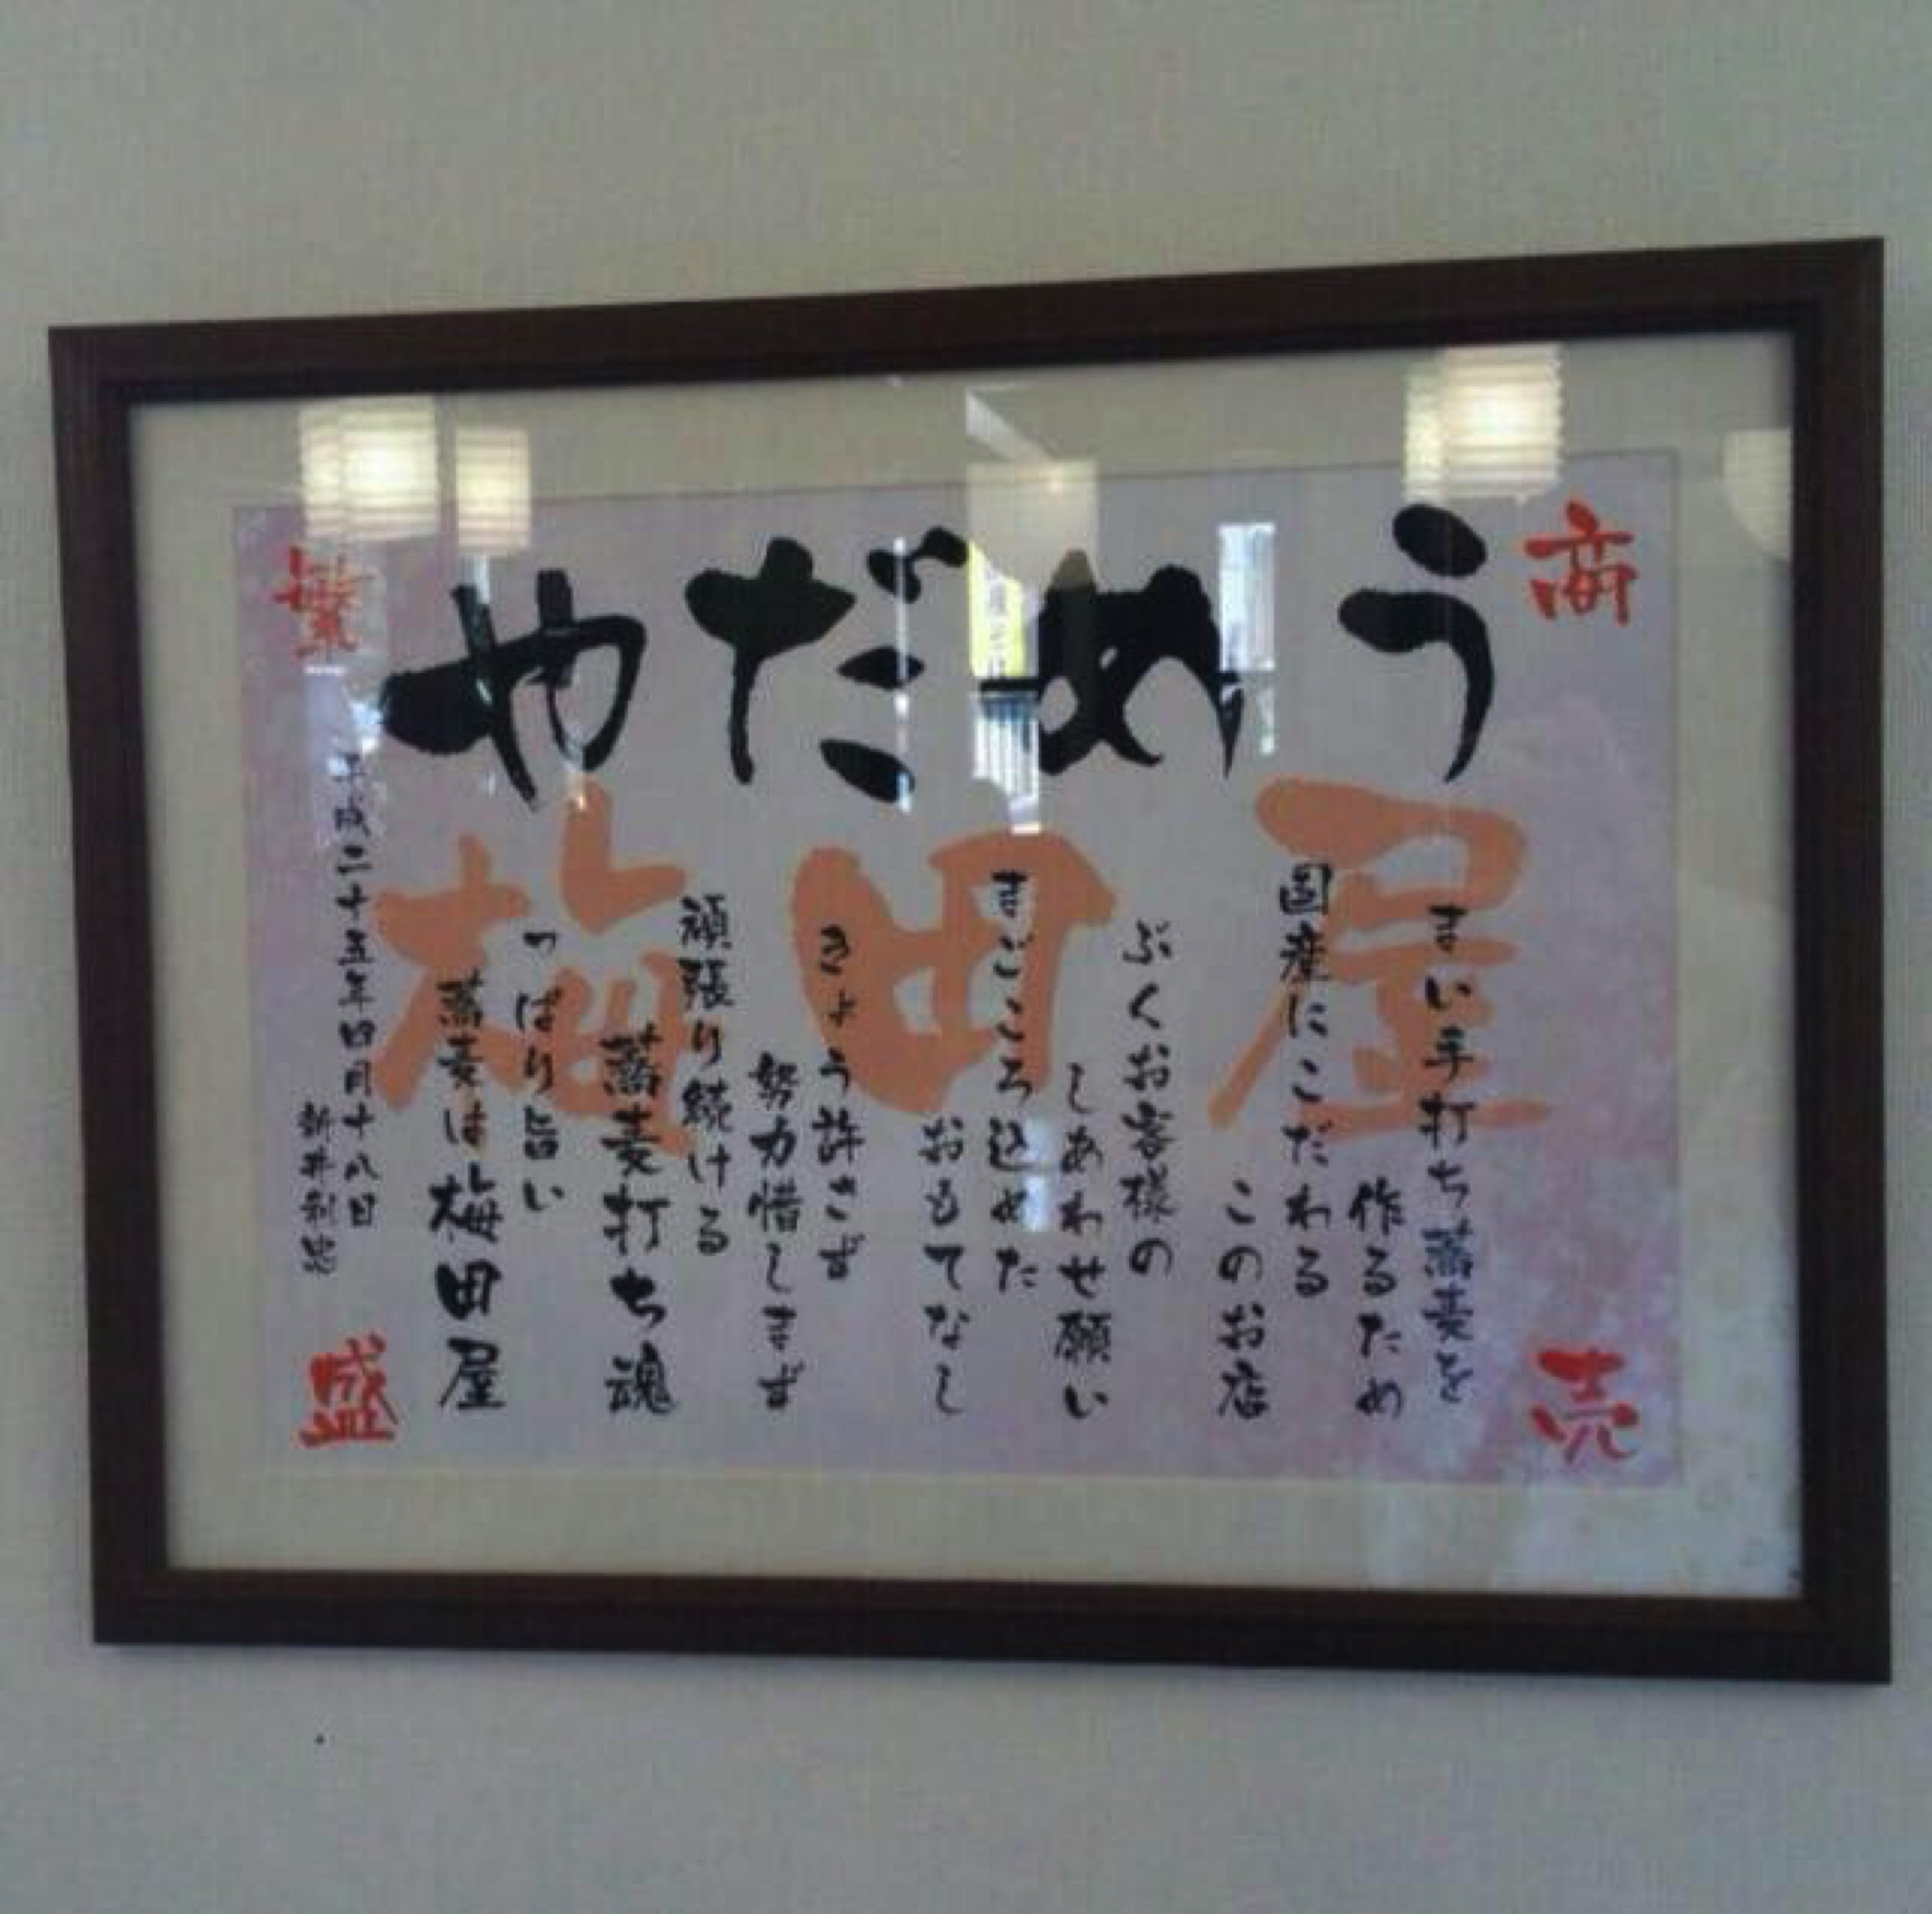 商売
繁盛
うめだや
梅田屋
まい手打ち蕎麦を
作るため
国産にこだわる
このお店
ぶくお客様の
しあわせ願い
まごころ込めた
おもてなし
きょう許さず
努力惜しまず
頑張り続ける
蕎麦打ち魂
っぱり旨い
蕎麦は梅田屋
平成二十五年四月十八日
新井利忠